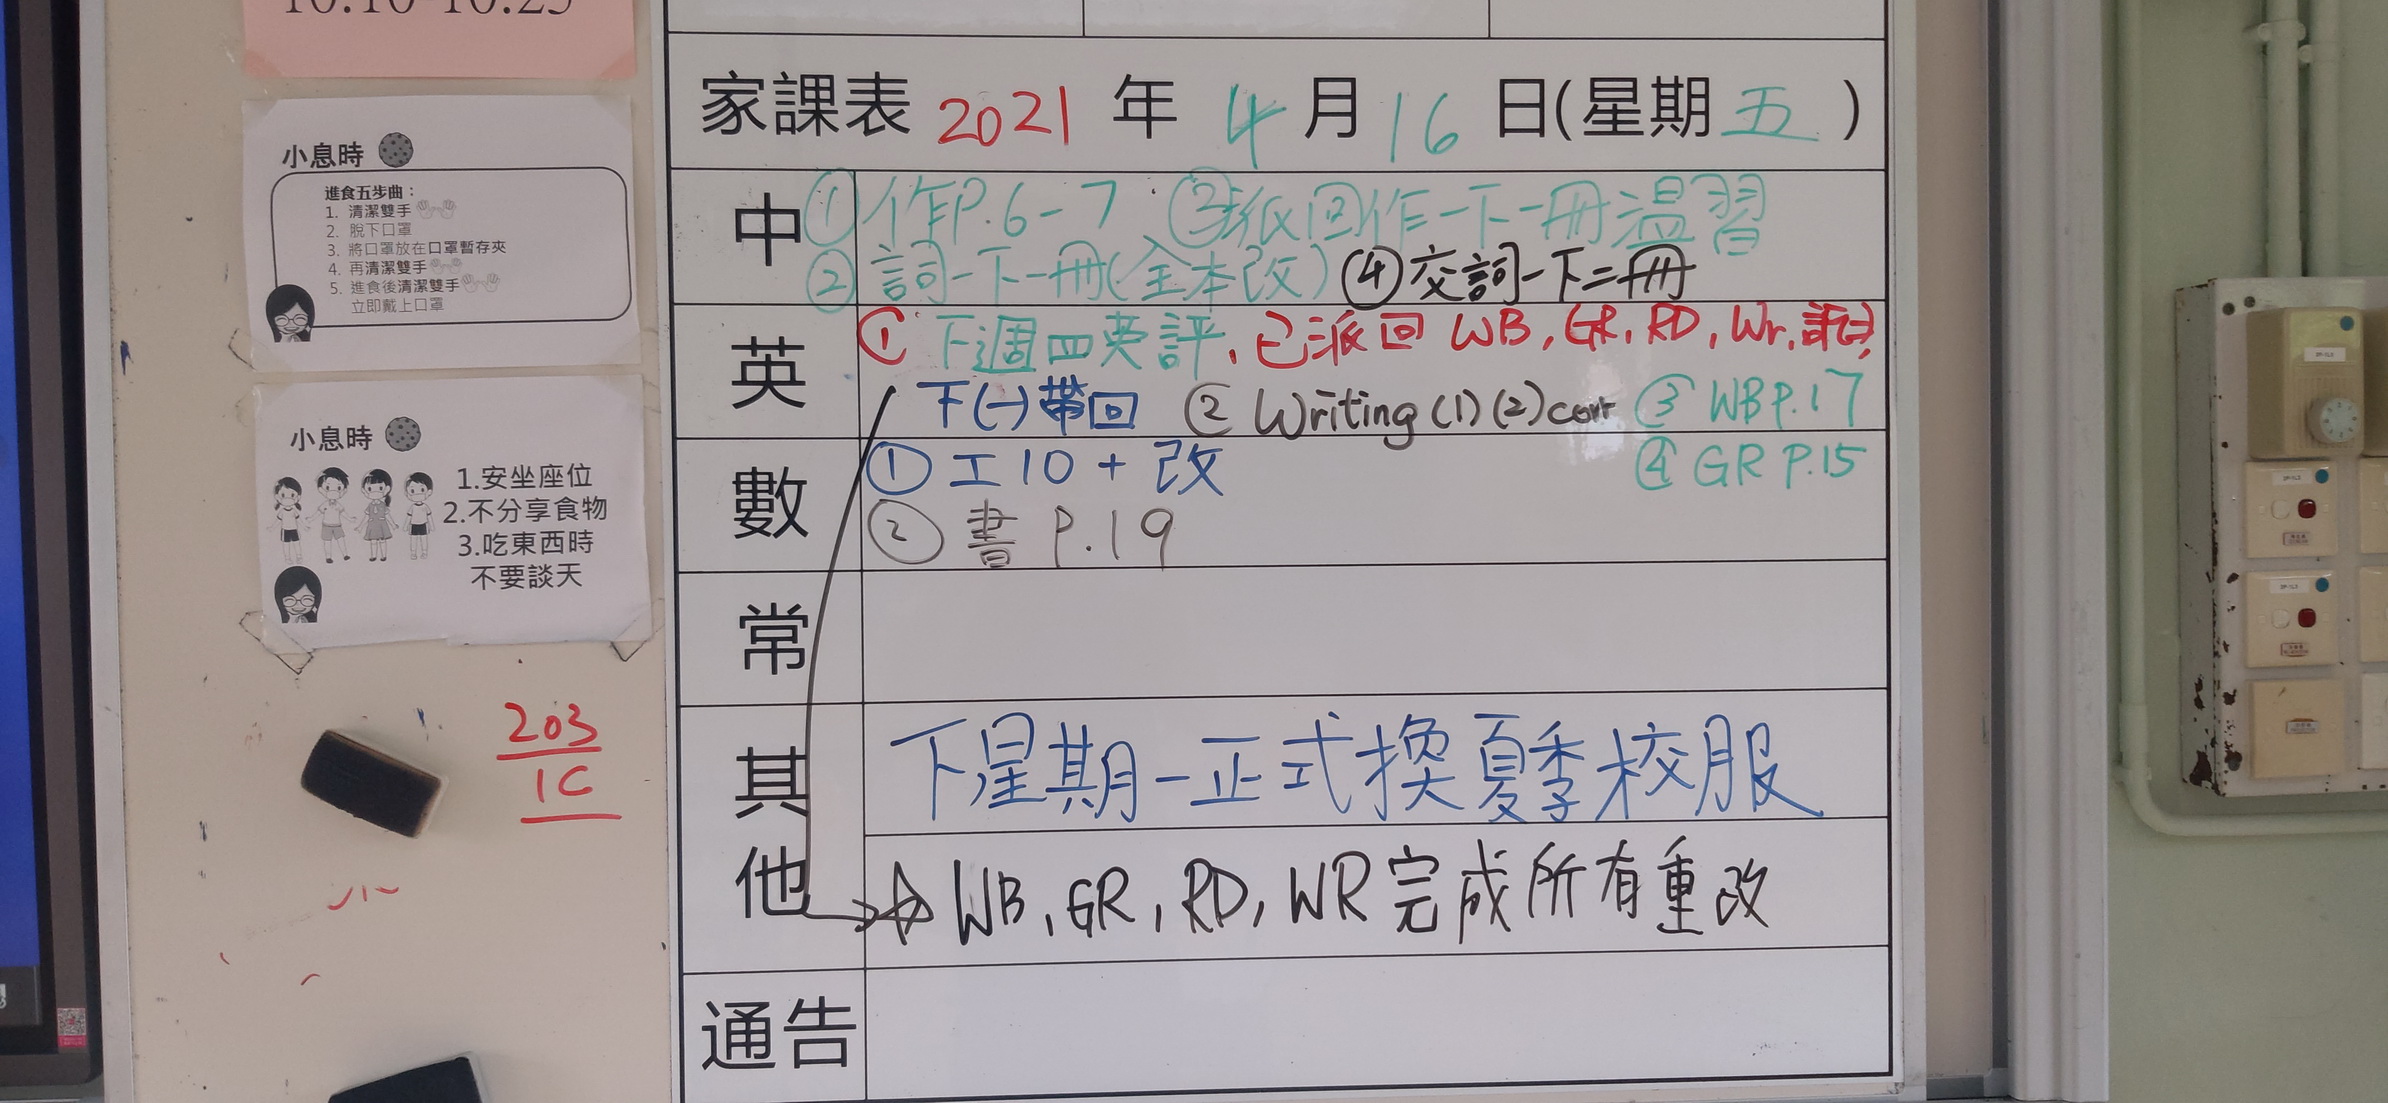 10:10-10:25
小息時
進食五步曲：
1. 清潔雙手
2. 脫下口罩
3. 將口罩放在口罩暫存夾
4. 再清潔雙手
5. 進食後清潔雙手
立即戴上口罩
小息時
1.安坐座位
2.不分享食物
3.吃東西時
不要談天
203
1C
家課表 2021 年 4 月 16 日(星期五)
中 ① 作P.6-7 ③派回作一下一冊溫習
② 詞一下一冊(全本改) ④交詞一下二冊
英 ① 下週四英評, 已派回 WB, GR, RD, Wr,
下(一)帶回 ② Writing (1) (2) corr ③ WB P.17
④ GR P.15
數 ① 工10 + 改
② 書 P.19
常
其他 下星期一正式換夏季校服
WB, GR, RD, WR 完成所有重改
通告